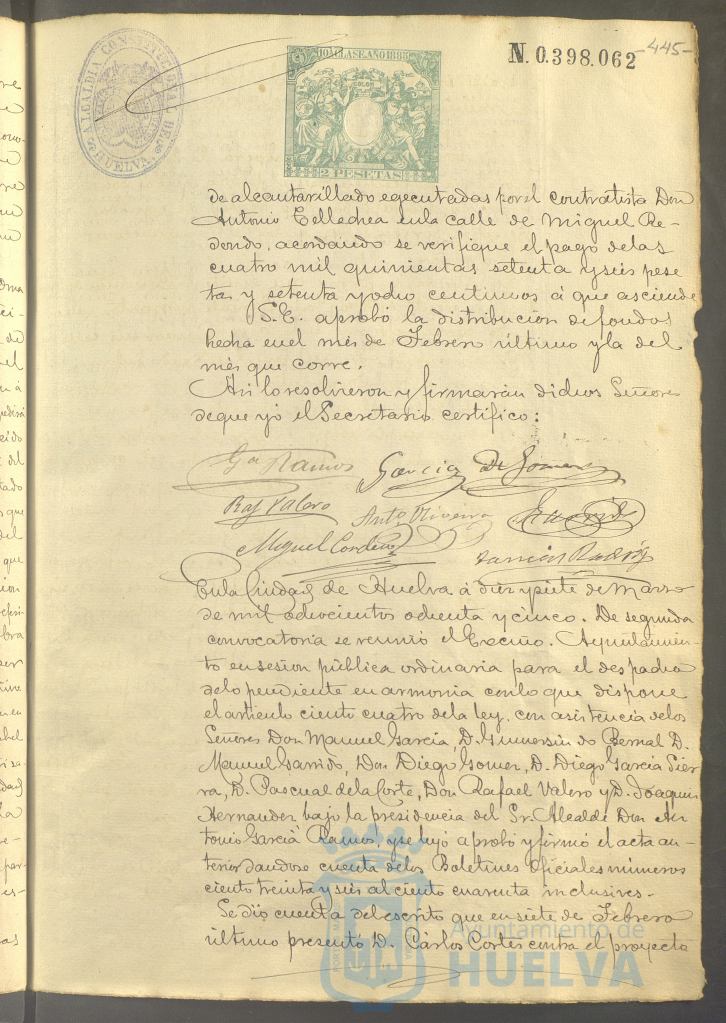 ALCALDIA CONSTITUCIONAL DE HUELVA
10ª CLASE AÑO 1885
2 PESETAS
N. 0.398.062
-445-
de alcantarillado egecutradas por el contratista Don
Antonio Tellechea en la calle de Miguel Re-
dondo, acordando se verifique el pago de las
cuatro mil quinientas setenta y seis pese
tas y setenta y ocho centimos á que asciende
S.E. aprobó la distribucion de fondos
hecha en el mes de Febrero último y la del
mes que corre.
Asi lo resolvieron y firmarán dichos Señores
de que yo el Secretario certifico:
Ga Ramos Garcia D. Gomez
Raf Valero Anto Oliveira Garrido
Miguel Cordero
En la Ciudad de Huelva á diez y siete de Marzo
de mil ochocientos ochenta y cinco. De segunda
convocatoria se reunió el Excmo. Ayuntamien-
to en sesion pública ordinaria para el despacho
de lo pendiente en armonia con lo que dispone
el articulo ciento cuatro de la ley, con asistencia de los
Señores Don Manuel Garcia, D. Gumersindo Bernal D.
Manuel Garrido, Don Diego Gomez, D. Diego Garcia Sier
ra, D. Pascual de la Corte, Don Rafael Valero y D. Joaquin
Hernandez bajo la presidencia del Sr. Alcalde Don An
tonio Garcia Ramos, y se leyó aprobó y firmó el acta an-
terior dandose cuenta de los Boletines oficiales números
ciento treinta y seis al ciento cuarenta inclusives.
Se dió cuenta del escrito que en siete de Febrero
último presentó D. Cárlos Cortes contra el proyecto
Ayuntamiento de
HUELVA